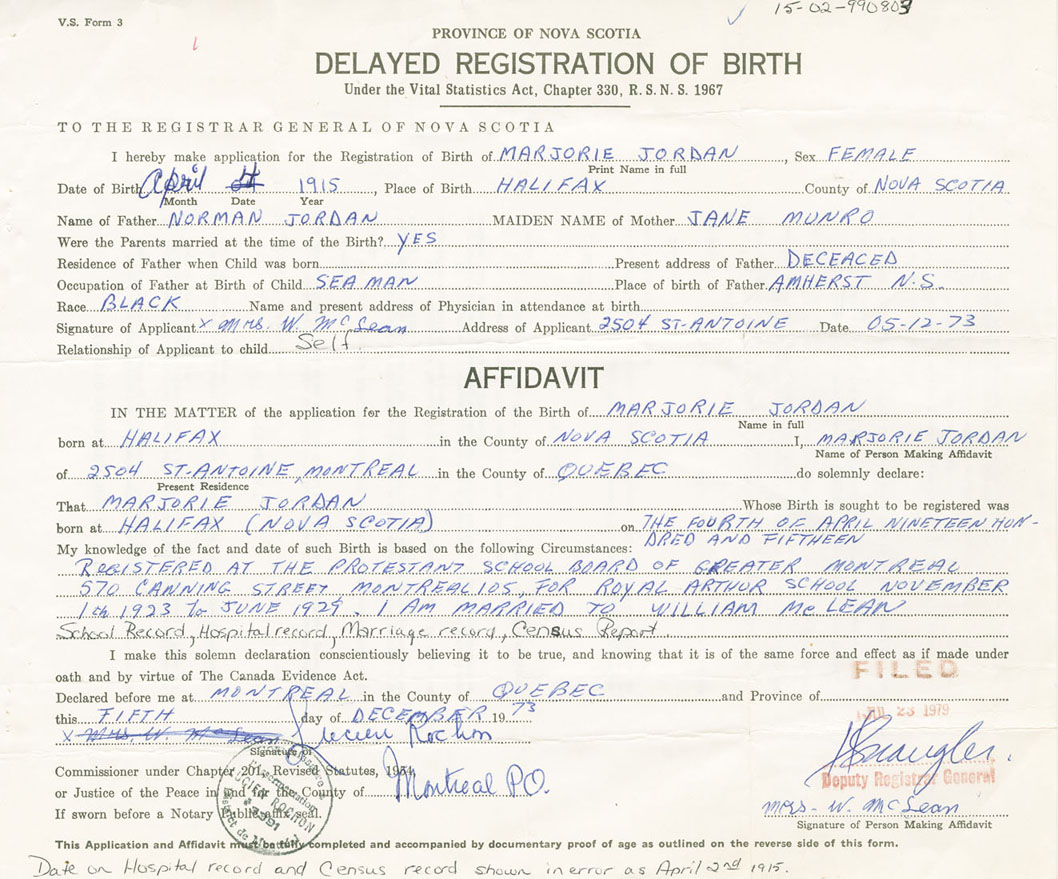 15-02-990803
V.S. Form 3
PROVINCE OF NOVA SCOTIA
DELAYED REGISTRATION OF BIRTH
Under the Vital Statistics Act, Chapter 330, R.S.N.S. 1967
TO THE REGISTRAR GENERAL OF NOVA SCOTIA
I hereby make application for the Registration of Birth of MARJORIE JORDAN, Sex FEMALE
Print Name in full
Date of Birth April 4 1915, Place of Birth HALIFAX County of NOVA SCOTIA
Month Date Year
Name of Father NORMAN JORDAN MAIDEN NAME of Mother JANE MUNRO
Were the Parents married at the time of the Birth? YES
Residence of Father when Child was born Present address of Father DECEACED
Occupation of Father at Birth of Child SEAMAN Place of birth of Father AMHERST N.S.
Race BLACK Name and present address of Physician in attendance at birth
Signature of Applicant x Mrs. W. McLean Address of Applicant 2504 ST-ANTOINE Date 05-12-73
Relationship of Applicant to child Self
AFFIDAVIT
IN THE MATTER of the application for the Registration of the Birth of MARJORIE JORDAN
Name in full
born at HALIFAX in the County of NOVA SCOTIA I, MARJORIE JORDAN
Name of Person Making Affidavit
of 2504 ST-ANTOINE, MONTREAL in the County of QUEBEC do solemnly declare:
Present Residence
That MARJORIE JORDAN Whose Birth is sought to be registered was
born at HALIFAX (NOVA SCOTIA) on THE FOURTH OF APRIL NINETEEN HUN-
DRED AND FIFTEEN
My knowledge of the fact and date of such Birth is based on the following Circumstances:
REGISTERED AT THE PROTESTANT SCHOOL BOARD OF GREATER MONTREAL
570 CANNING STREET MONTREAL 105, FOR ROYAL ARTHUR SCHOOL NOVEMBER
1th 1923 To JUNE 1929. I AM MARRIED TO WILLIAM McLEAN
School Record, Hospital record, Marriage record, Census Report.
I make this solemn declaration conscientiously believing it to be true, and knowing that it is of the same force and effect as if made under
oath and by virtue of The Canada Evidence Act.
FILED
Declared before me at MONTREAL in the County of QUEBEC and Province of
this FIFTH day of DECEMBER 19 73
23 1979
x Mrs. W. McLean Lucien Rochon
Signature of
Commissioner under Chapter 201, Revised Statutes, 1954,
Deputy Registrar General
or Justice of the Peace in and for the County of Montreal P.Q.
Mrs. W. McLean
If sworn before a Notary Public affix seal.
Signature of Person Making Affidavit
This Application and Affidavit must be fully completed and accompanied by documentary proof of age as outlined on the reverse side of this form.
Date on Hospital record and Census record shown in error as April 2nd 1915.